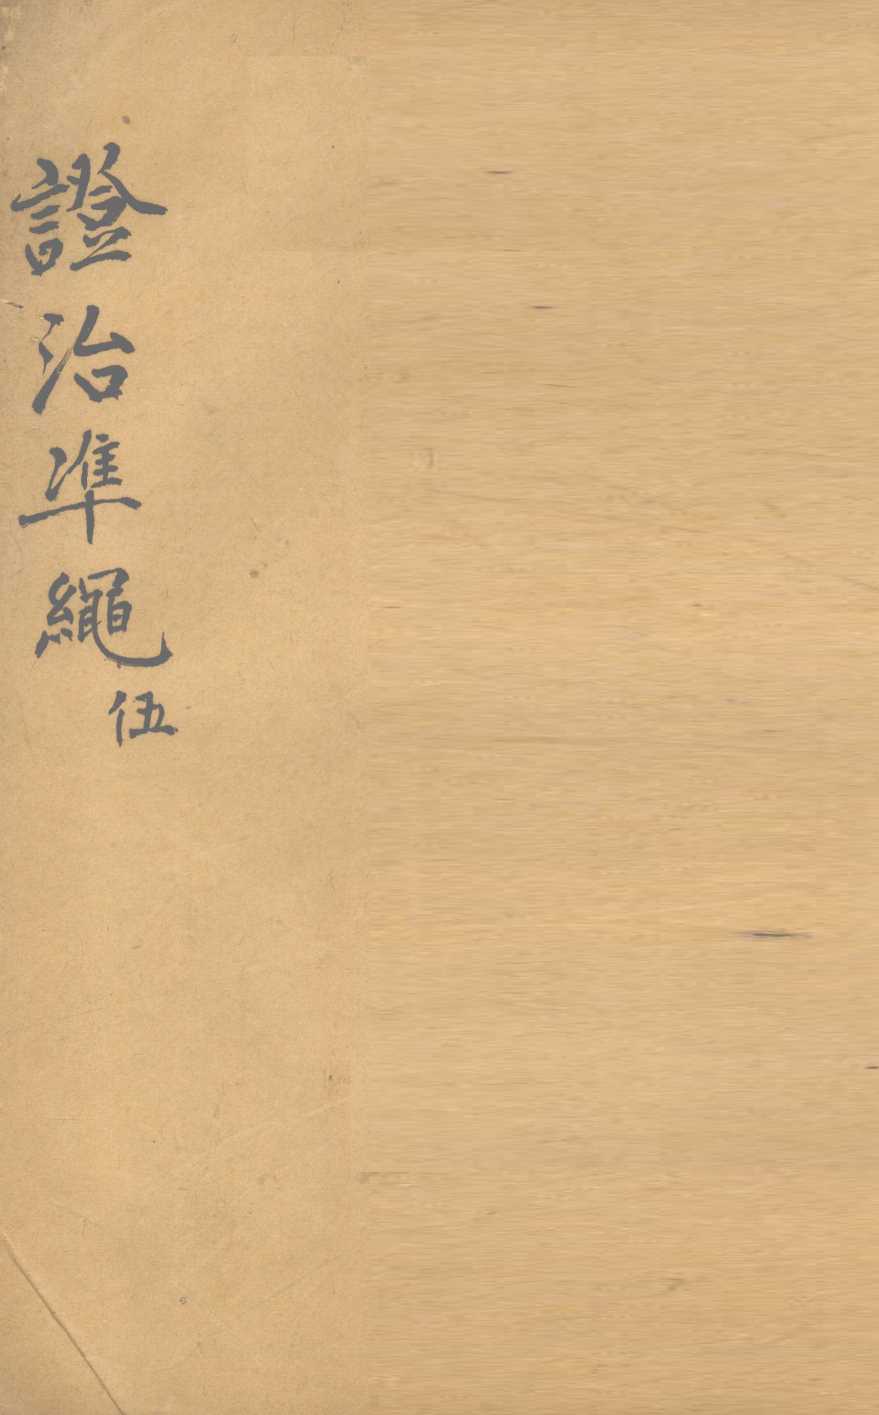 證治準繩伍